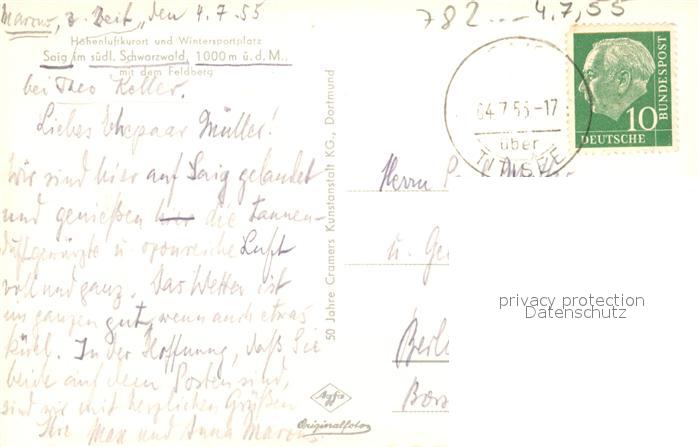 z. Zeit, den 4.7.55
782 --- 4.7,55
Höhenluftkurort und Wintersportplatz
Saig im südl. Schwarzwald, 1000 m ü. d. M.,
mit dem Feldberg
bei Theo Keller.
Liebes Ehepaar Müller!
Wir sind hier auf Saig gelandet
und genießen hier die Tannen-
duftgewürzte u. ozonreiche Luft
voll und ganz. Das Wetter ist
im ganzen gut, wenn auch etwas
kühl. In der Hoffnung, daß Sie
beide auf dem Posten sind,
sind wir mit herzlichen Grüßen
Ihre Max und Anna
50 Jahre Cramers Kunstanstalt KG., Dortmund
Agfa
Originalfoto
04.7.55-17
über
10
DEUTSCHE
BUNDESPOST
Herrn
u. Ge
Berli
privacy protection
Datenschutz